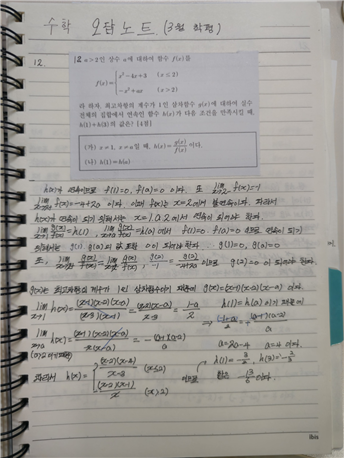 수학 오답노트 (3월 학평)
12.
12 a>2인 상수 a에 대하여 함수 f(x)를
f(x)= { x²-4x+3 (x≤2)
-x²+ax (x>2)
라 하자. 최고차항의 계수가 1인 삼차함수 g(x)에 대하여 실수
전체의 집합에서 연속인 함수 h(x)가 다음 조건을 만족시킬 때,
h(1)+h(3)의 값은? [4점]
(가) x≠1, x≠a일 때, h(x)=g(x)/f(x)이다.
(나) h(1)=h(a)
h(x)가 연속이므로 f(1)=0, f(a)=0 이다. 또 lim f(x)=-1
lim f(x)=-4+2a 이다. 이때 f(x)는 x=2에서 불연속이다. 따라서
h(x)가 연속이 되기 위해서는 x=1, a, 2에서 연속이 되어야 한다.
lim g(x)/f(x)=h(1), lim g(x)/f(x)=h(a)에서 f(1)=0 f(a)=0 이므로 연속이 되기
위해서는 g(1) g(a)의 값 또한 0이 되어야 한다. ∴ g(1)=0, g(a)=0
또, lim g(x)/f(x) = lim g(x)/f(x), g(2)/-1 = g(2)/-4+2a 이므로 g(2)=0 이 되어야 한다.
g(x)는 최고차항의 계수가 1인 삼차함수이기 때문에 g(x)=(x-1)(x-2)(x-a) 이다.
lim h(x)= (x-1)(x-2)(x-a)/(x-3)(x-1) = (x-2)(x-a)/x-3 = 1-a/2 h(1)=h(a) 이기 때문에
lim h(x)= (x-1)(x-2)(x-a)/-x(x-a) = -(a-1)(a-2)/a
a=4 이다.
따라서 h(x)= { (x-2)(x-4)/x-3 (x≤2)
-(x-2)(x-1)/x (x>2)
h(1)=-3/2, h(3)=-2/3
합은 -13/6 이다.
ibis